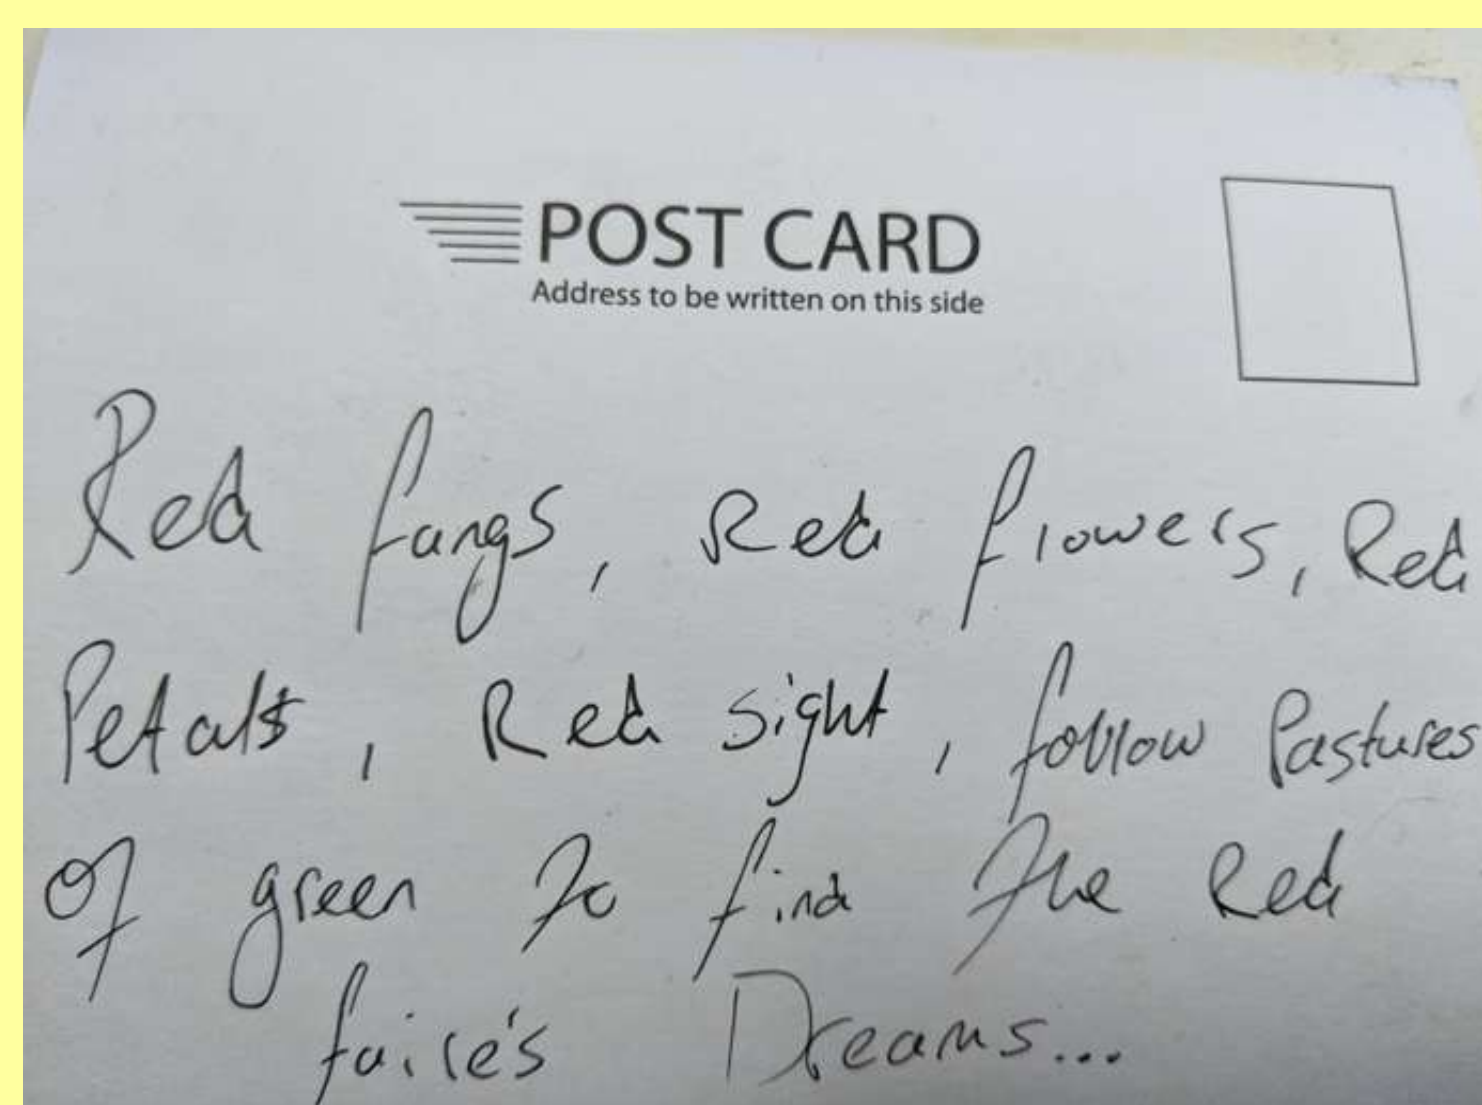 POST CARD
Address to be written on this side
Red fangs, Red flowers, Red
Petals, Red sight, follow Pastures
of green to find the Red
faire's Dreams...